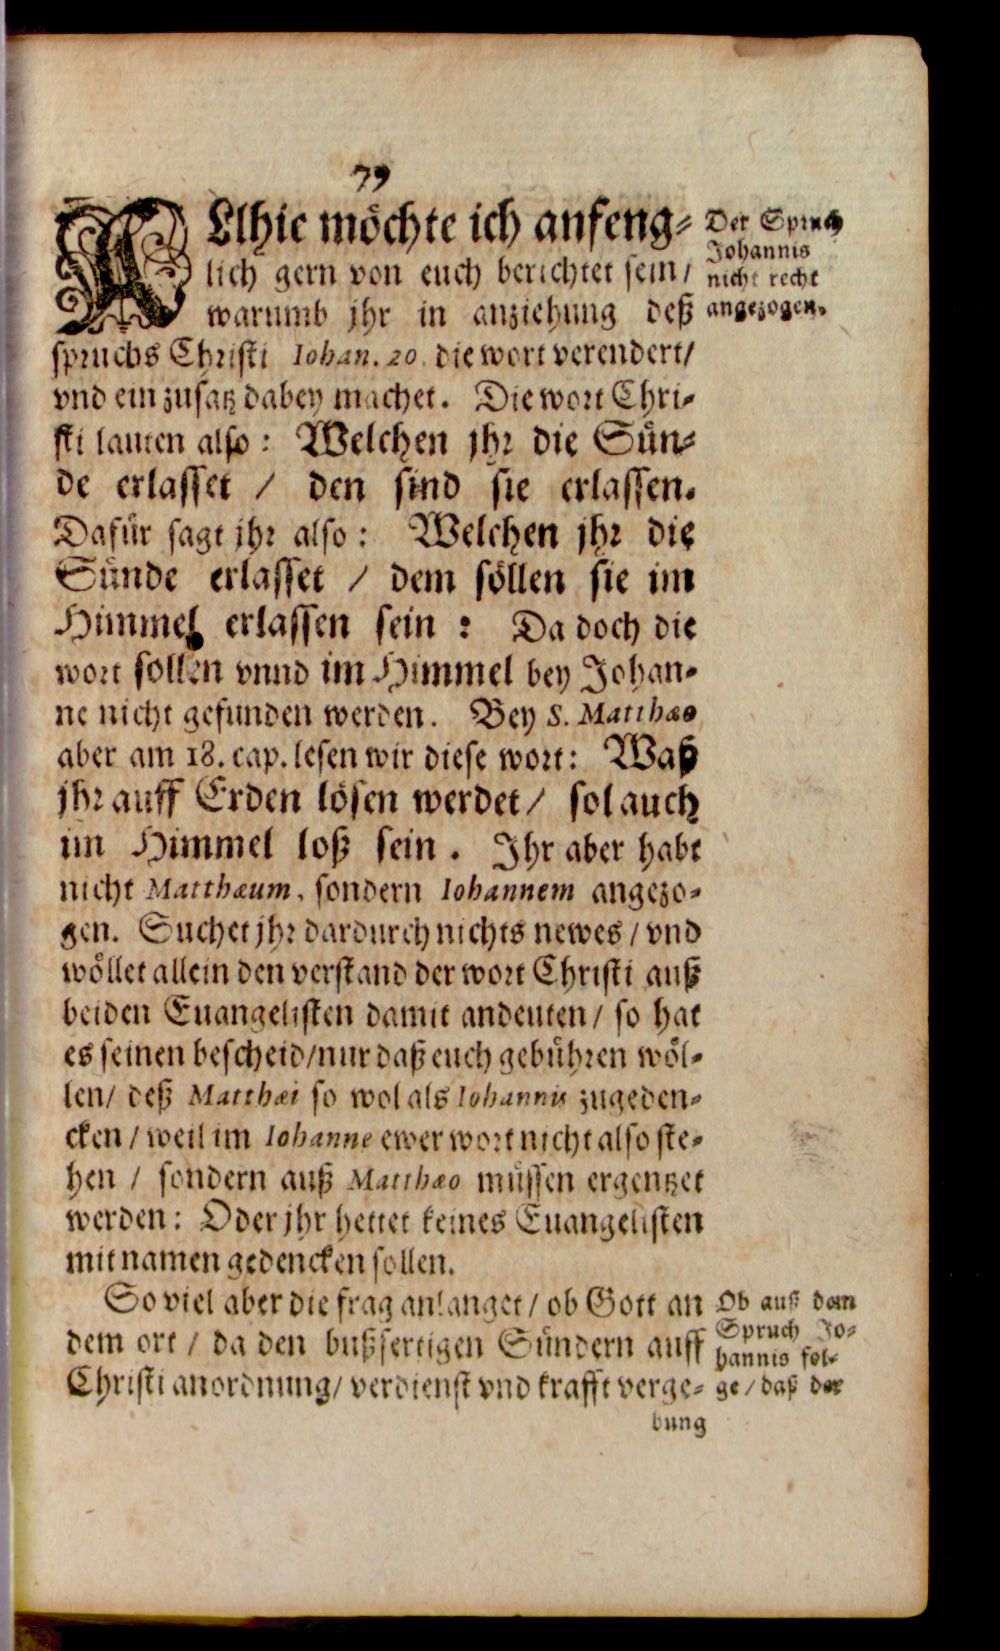 79
ALlhie möchte ich anfeng⸗
lich gern von euch berichtet sein/
warumb jhr in anziehung deß
spruchs Christi Iohan. 20. die wort verendert/
vnd ein zusatz dabey machet. Die wort Chri⸗
sti lauten also: Welchen jhr die Sün⸗
de erlasset / den sind sie erlassen.
Dafür sagt jhr also: Welchen jhr die
Sünde erlasset / dem söllen sie im
Himmel erlassen sein: Da doch die
wort sollen vnnd im Himmel bey Johan⸗
ne nicht gefunden werden. Bey S. Matthæo
aber am 18. cap. lesen wir diese wort: Waß
jhr auff Erden lösen werdet/ sol auch
im Himmel loß sein. Ihr aber habt
nicht Matthæum, sondern Iohannem angezo⸗
gen. Suchet jhr dardurch nichts newes / vnd
wöllet allein den verstand der wort Christi auß
beiden Euangelisten damit andeuten / so hat
es seinen bescheid/nur daß euch gebühren wöl⸗
len/ deß Matthæi so wol als Iohannis zugeden⸗
cken / weil im Iohanne ewer wort nicht also ste⸗
hen / sondern auß Matthæo müssen ergentzet
werden: Oder jhr hettet keines Euangelisten
mit namen gedencken sollen.
So viel aber die frag anlanget/ ob Gott an
dem ort / da den bußfertigen Sündern auff
Christi anordnung/ verdienst vnd krafft verge⸗
bung
Der Spruch
Johannis
nicht recht
angezogen.
Ob auß dem
Spruch Jo⸗
hannis fol⸗
ge / daß der